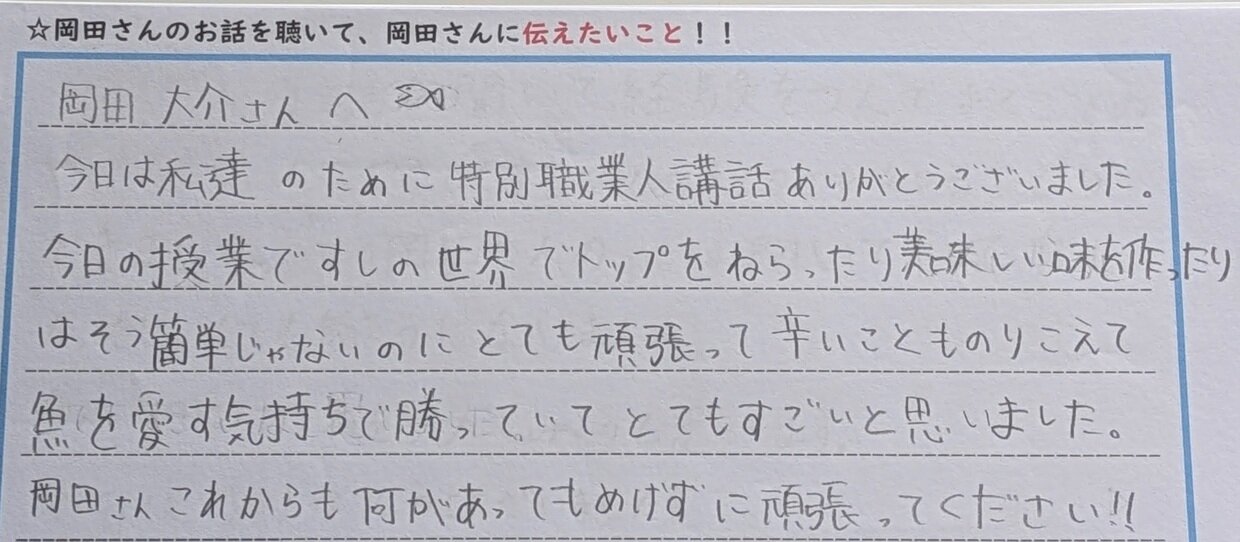 ☆岡田さんのお話を聴いて、岡田さんに伝えたいこと！！
岡田 大介さんへ
今日は私達のために特別職業人講話ありがとうございました。
今日の授業ですしの世界でトップをねらったり美味しい味を作ったり
はそう簡単じゃないのにとても頑張って辛いことものりこえて
魚を愛す気持ちで勝っていてとてもすごいと思いました。
岡田さんこれからも何があってもめげずに頑張ってください!!